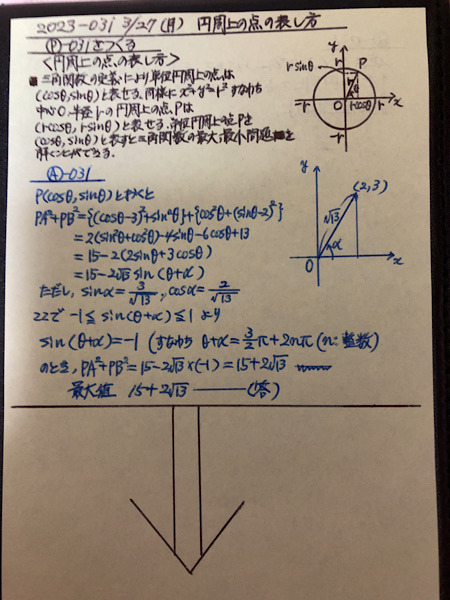 2023-031 3/27(月) 円周上の点の表し方
(P)-031 さつくる
<円周上の点の表し方>
三角関数の定義により単位円周上の点は
(cosθ, sinθ)と表せる。同様に x²+y²=r² すなわち
中心O, 半径rの円周上の点Pは
(rcosθ, rsinθ)と表せる。単位円周上の点Pを
(cosθ, sinθ)と表すと三角関数の最大・最小問題
解くことができる。
y
rsinθ
r
P
r
θ
-r
O
rcosθ
r
x
-r
(A)-031
P(cosθ, sinθ)とおくと
PA²+PB²={(cosθ-3)²+sin²θ}+{cos²θ+(sinθ-2)²}
=2(sin²θ+cos²θ)-4sinθ-6cosθ+13
=15-2(2sinθ+3cosθ)
=15-2√13 sin(θ+α)
ただし, sinα=3/√13, cosα=2/√13
ここで -1≦sin(θ+α)≦1 より
sin(θ+α)=-1 (すなわち θ+α=3/2π+2nπ (n:整数)
のとき, PA²+PB²=15-2√13×(-1)=15+2√13
最大値 15+2√13 (答)
y
(2,3)
√13
α
O
x